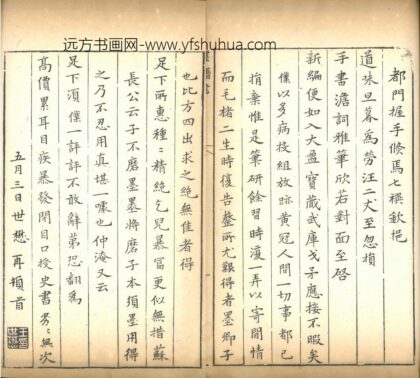 远方书画网-www.yfshuhua.com
都門握手倏焉七禩欽挹
道味旦暮為勞汪二丈至忽損
手書澹詞雅筆欣若對面至啓
新編便如入大盈寶藏武庫戈矛應接不暇矣
僕以多病投組放跡黃冠人間一切事都已
捐棄惟是筆研餘習時復一弄以寄閒情
而毛楮二生時復告罄所尤艱得者墨卿子
也比方四出求之絕無佳者得
足下所惠種〻精絕乞兒暴富更似無措蘇
長公云子不磨墨墨將磨子本須墨用得
之乃不忍用真堪一噱也仲淹又云
足下須僕一評評不敢辭第恐翻為
高價累耳目疾暴發閉目口授史書無次
五月三日世懋再頓首